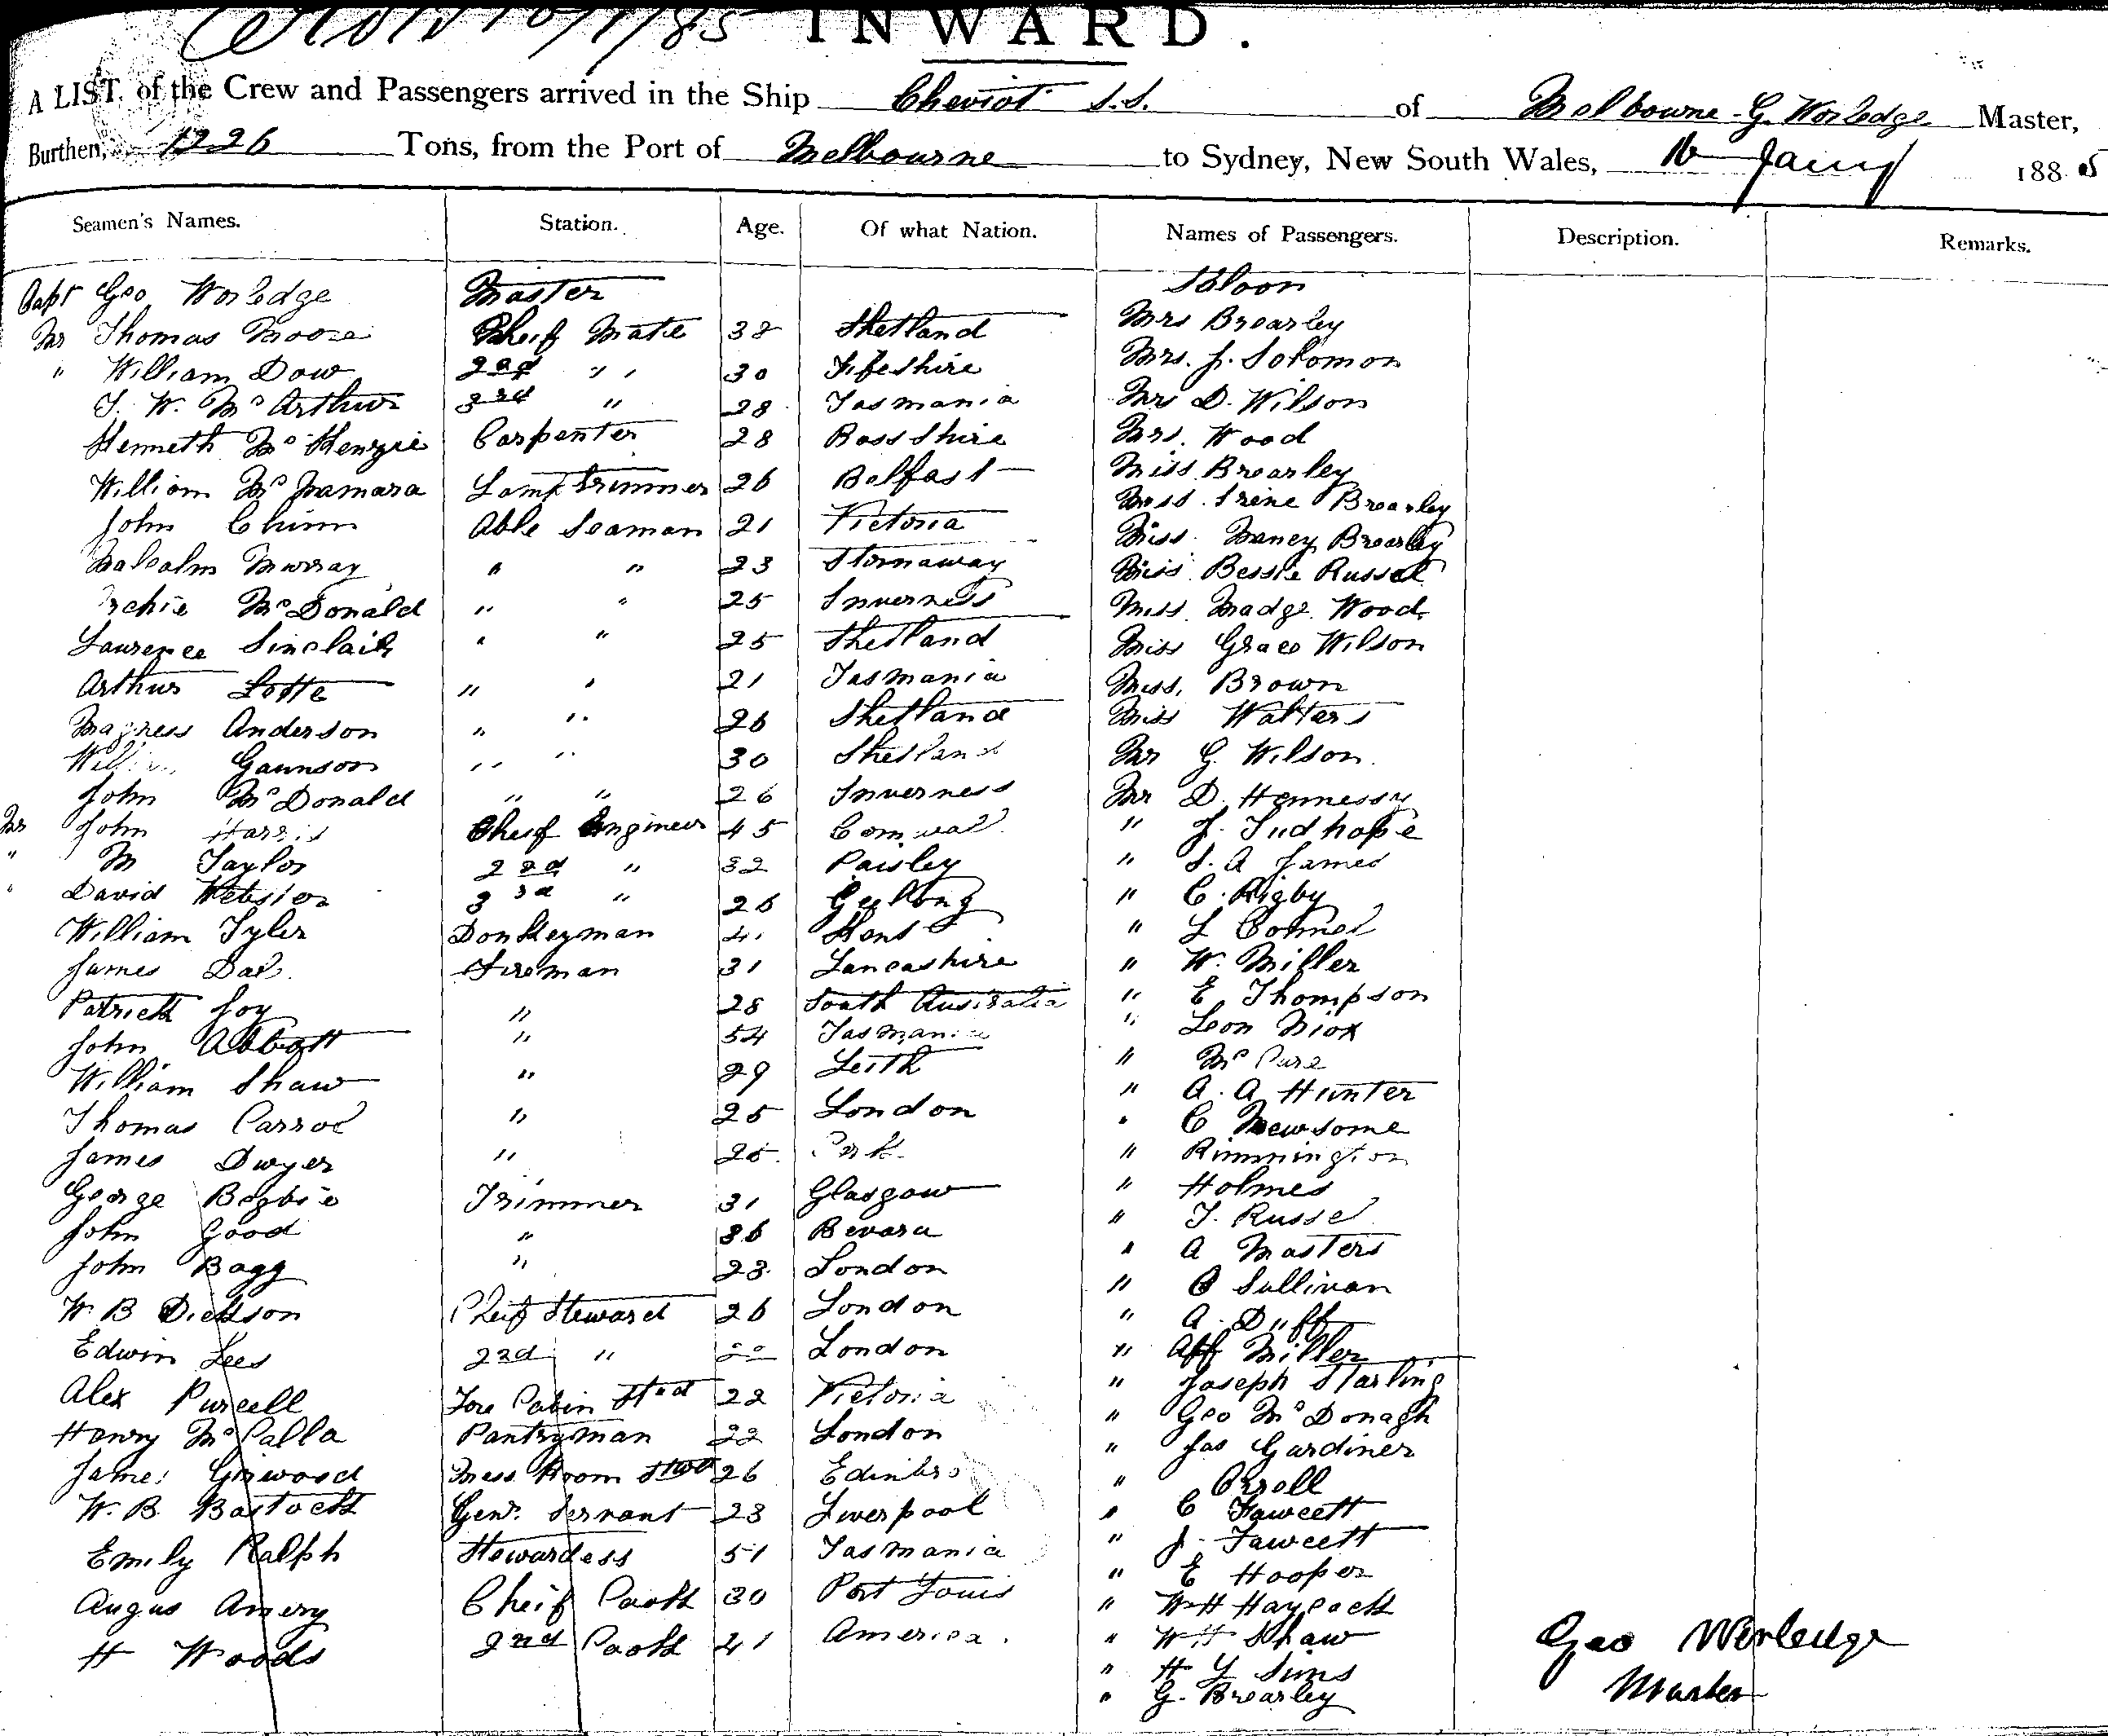 10/1/85 INWARD.
A LIST of the Crew and Passengers arrived in the Ship Cheviot S.S. of Melbourne G. Worledge Master,
Burthen, 1226 Tons, from the Port of Melbourne to Sydney, New South Wales, 1885
Seamen's Names. Station. Age. Of what Nation. Names of Passengers. Description. Remarks.
Capt Geo Worledge Master Saloon
Mr Thomas Moore Cheif Mate 38 Shetland Mrs Brearley
" William Dow 2nd " " 30 Fifeshire Mrs. J. Solomon
J. W. McArthur 3rd " 28 Tasmania Mrs D. Wilson
Kenneth McKenzie Carpenter 28 Ross Shire Mrs. Wood
William McNamara Lamp Trimmer 26 Belfast Miss Brearley
John Chinn Able Seaman 21 Victoria Miss Irene Brearley
Malcolm Murray " " 23 Stornaway Miss Nancy Brearley
Archie McDonald " " 25 Inverness Miss Bessie Russel
Laurence Sinclair " " 25 Shetland Miss Madge Wood
Arthur Lotte " " 21 Tasmania Miss Grace Wilson
Magness Anderson " " 26 Shetland Miss. Brown
William Gaunson " " 30 Shetland Miss Walters
John McDonald " " 26 Inverness Mr G. Wilson
Mr John Harris Cheif Engineer 45 Cornwal Mr D. Hennessy
" M Taylor 2nd " 32 Paisley " J. Tudhope
" David Webster 3rd " 26 Geelong " S. A James
William Tyler Donkeyman 41 Kent " C. Rigby
James Dal Fireman 31 Lancashire " L Connel
Patrick Joy " 28 South Australia " W. Miller
John Abbott " 54 Tasmania " E Thompson
William Shaw " 29 Leith " Leon Niox
Thomas Carrol " 25 London " McCure
James Dwyer " 25 Cork " A. A Hunter
George Bagbie Trimmer 31 Glasgow " C Newsome
John Good " 36 " Rimmington
John Bagg " 23 London " Holmes
W. B Dickson Cheif Steward 26 London " T. Russel
Edwin Lees 2nd " 22 London " A Masters
Alex Purcell Fore Cabin Std 22 Victoria " O Sullivan
Henry McCalla Pantryman 22 London " A. Duff
James Girwood Mess Room Stwd 26 Edinbro " Miller
W. B. Bastock Genr. Servant 23 Liverpool " Joseph Starling
Emily Ralph Stewardess 51 Tasmania " Geo McDonagh
Angus Amery Cheif Cook 30 Port Louis " Jas Gardiner
H Woods 2nd Cook 41 America. " Orroll
" C Fawcett
" J. Fawcett
" E Hooper
" W H Haycock
" W H Shaw
" H Y Sims
" G. Brearley
Geo Worledge
Master